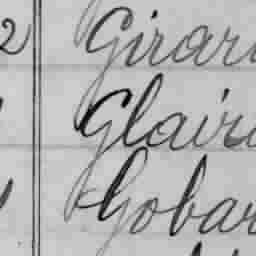 2 Girar
Glair
Gobar